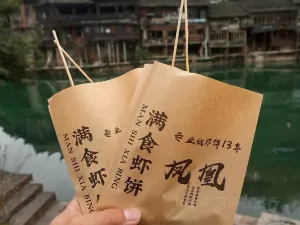 满食虾饼
MAN SHI XIA BING
满食虾
MAN SHI XIA BING
专业做虾饼13年
凤凰